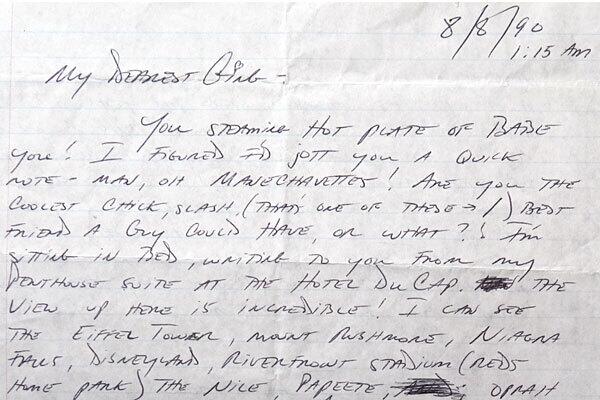 8/8/90
1:15 AM
My Dearest Ging -
You steaming hot plate of babe
you! I figured I'd jott you a quick
note - man, oh manechavettes! Are you the
coolest chick, slash, (that's one of these → /) best
friend a guy could have, or what?! I'm
sitting in bed, writing to you from my
penthouse suite at the Hotel Du Cap. The
view up here is incredible! I can see
the Eiffel Tower, Mount Rushmore, Niagra
Falls, Disneyland, Riverfront Stadium (Reds
home park) the Nile, Papeete, Oprah